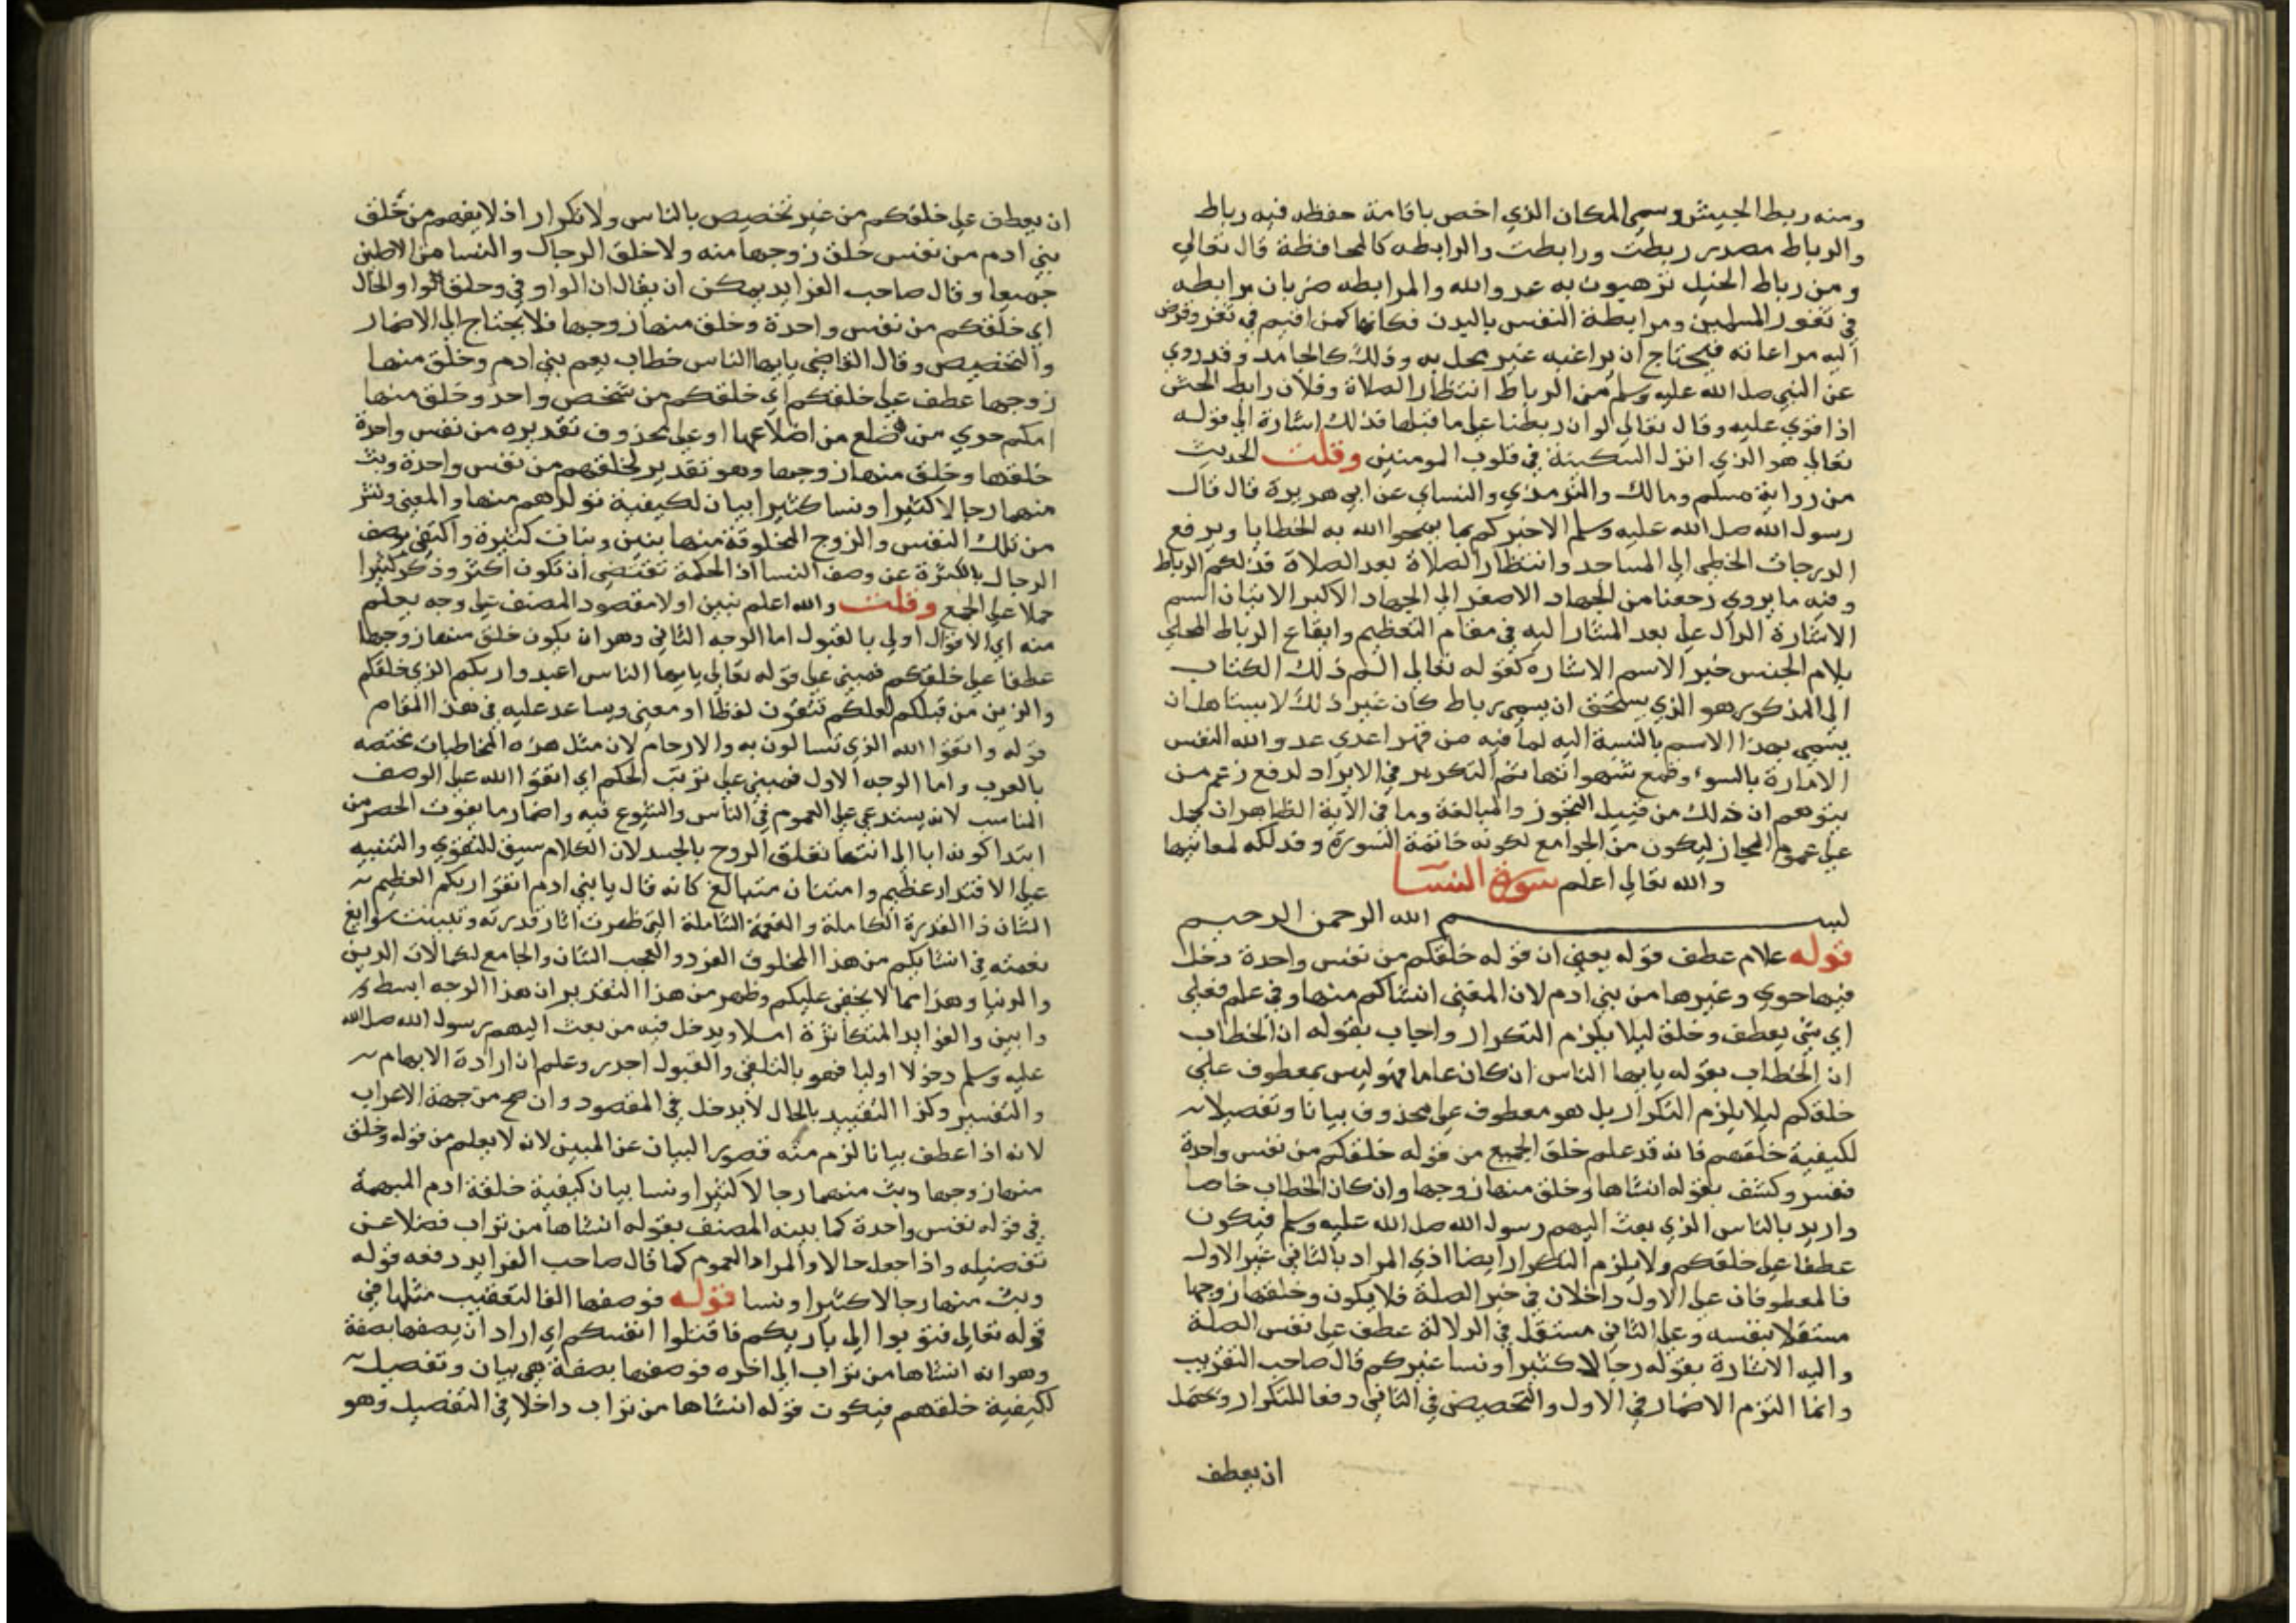 ومنه ربط الجيش وسمي المكان الذي اخص باقامة حفظه فيه رباط
والرباط مصدر ربطت ورابطت والرابطه كالمحافظة قال تعالي
ومن رباط الخيل ترهبون به عدو الله والمرابطه ضربان مرابطه
في ثغور المسلمين ومرابطة النفس بالبدن فكانها كمن اقيم في ثغر وفوض
اليه مراعاته فيحتاج ان يراعيه غير محل به وذلك كالجامد وقد روي
عن النبي صلي الله عليه وسلم من الرباط انتظار الصلاة وفلان رابط الجش
اذا قوي عليه وقال تعالي لولا ان ربطنا علي ما قبلها فذلك اشارة الي قوله
تعالي هو الذي انزل السكينة في قلوب المومنين وقلت الحديث
من رواية مسلم ومالك والترمذي والنساي عن ابي هريرة قال قال
رسول الله صلي الله عليه وسلم الا خبركم بما يمحوا الله به الخطايا ويرفع
الدرجات الخطي الي المساجد وانتظار الصلاة بعد الصلاة فذلكم الرباط
وفيه ما يروي رجعنا من الجهاد الاصغر الي الجهاد الاكبر الاتيان السم
الاشارة الدال علي بعد المشار اليه في مقام التعظيم وايقاع الرباط المحلي
بلام الجنس خبر الاسم الاشاره كقوله تعالي الم ذلك الكتاب
الي المذكور هو الذي يستحق ان يسمي رباط كان غير ذلك لا يستاهل ان
يسمي بهذا الاسم بالنسبة اليه لما فيه من قهر اعدي عدو الله النفس
الامارة بالسوء وقمع شهواتها ثم التكرير في الايراد لدفع زعم من
يتوهم ان ذلك من قبيل التجوز والمبالغة وما في الاية الظاهر ان يحمل
علي عموم المجاز ليكون من الجوامع لكونه خاتمة السورة وفدلكه لمعانيها
والله تعالي اعلم سورة النسا
بسم الله الرحمن الرحيم
قوله علام عطف قوله يعني ان قوله خلقكم من نفس واحدة دخل
فيها حوي وغيرها من بني ادم لان المعني انشاكم منها وفي علم فعلي
اي شي يعطف وخلق ليلا يلزم التكرار واجاب بقوله ان الخطاب
ان الخطاب بقوله يايها الناس ان كان عاما فهو ليس بمعطوف علي
خلقكم ليلا يلزم التكرار بل هو معطوف علي محذوف بيانا وتفصيلا
لكيفية خلقهم فانه قد علم خلق الجميع من قوله خلقكم من نفس واحدة
ففسر وكشف بقوله انشاها وخلق منها زوجها وان كان الخطاب خاصا
واريد بالناس الذي بعث اليهم رسول الله صلي الله عليه وسلم فيكون
عطفا علي خلقكم ولا يلزم التكرار ايضا اذ المراد بالثاني غير الاول
فالمعطوفان علي الاول داخلان في خبر الصلة فلا يكون وخلق منها زوجها
مستقلا بنفسه وعلي الثاني مستقل في الدلالة عطف علي نفس الصلة
واليه الاشارة بقوله رجالا كثيرا ونسا غيركم قال صاحب التقريب
وانما التزم الاضمار في الاول والتخصيص في الثاني دفعا للتكرار ويحتمل
ان يعطف
ان يعطف علي خلقكم من غير تخصيص بالناس ولا تكرار اذ لا يفهم من خلق
بني ادم من نفس خلق زوجها منه ولا خلق الرجال والنسا من الاصلين
جميعا وقال صاحب الفرايد يمكن ان يقال ان الواو في وخلق الواو الحال
اي خلقكم من نفس واحدة وخلق منها زوجها فلا يحتاج الي الاضمار
والتخصيص وقال القاضي يايها الناس خطاب يعم بني ادم وخلق منها
زوجها عطف علي خلقكم اي خلقكم من شخص واحد وخلق منها
امكم حوي من ضلع من اضلاعها او علي محذوف تقديره من نفس واحدة
خلقها وخلق منها زوجها وهو تقدير لخلقهم من نفس واحدة وبث
منهما رجالا كثيرا ونسا كثيرا بيان لكيفية تولدهم منها والمعني ونشر
من تلك النفس والزوج المخلوقة منها بنين وبنات كثيرة واكتفي بوصف
الرجال بالكثرة عن وصف النسا اذ الحكمة تقتضي ان تكون اكثر وذكر كثيرا
حملا علي الجمع وقلت والله اعلم نبين اولا مقصود المصنف علي وجه يعلم
منه اي الاقوال اولي بالقبول اما الوجه الثاني وهو ان يكون خلق منها زوجها
عطفا علي خلقكم فمبني علي قوله تعالي يايها الناس اعبدوا ربكم الذي خلقكم
والذين من قبلكم لعلكم تتقون لفظا او معني ويساعد عليه في هذا المقام
قوله واتقوا الله الذي تسالون به والارحام لان مثل هذه المخاطبات مختصه
بالعرب واما الوجه الاول فمبني علي ترتب الحكم اي اتقوا الله علي الوصف
المناسب لانه يستدعي علي العموم في الناس والتنوع فيه واضمار ما يفوت الحصر من
ابتدا كونه ابا الي انتها تعلق الروح بالجسد لان الكلام سيق للتقوي والتنبيه
علي الاقتدار عظيم وامتنان متبالغ كانه قال يا بني ادم اتقوا ربكم العظيم
الشان ذا القدرة الكاملة والنعمة الشاملة التي ظهرت اثار قدرته وتبينت سوابغ
نعمته في انشايكم من هذا المخلوق الفرد والعجب الشان والجامع لكمالات الدين
والدنيا وهذا مما لا يخفي عليكم وظهر من هذا التقدير ان هذا الوجه ابسط
وابين والفوايد المتكاثرة املا ويدخل فيه من بعث اليهم رسول الله صلي الله
عليه وسلم دخولا اوليا فهو بالتلقي والقبول اجدر وعلم ان ارادة الابهام
والتفسير وكذا التقييد بالحال لا يدخل في المقصود وان صح من جهة الاعراب
لانه اذا عطف بيانا لزم منه قصور البيان عن المبين لانه لا يعلم من قوله وخلق
منها زوجها وبث منهما رجالا كثيرا ونسا بيان كيفية خلقة ادم المبهمة
في قوله نفس واحدة كما بينه المصنف بقوله انشاها من تراب فضلا عن
تفصيله واذا جعل حالا والمراد العموم كما قال صاحب الفرايد رفعه قوله
وبث منها رجالا كثيرا ونسا قوله فوصفها الفا للتعقيب مثلها في
قوله تعالي فتوبوا الي باريكم فاقتلوا انفسكم اي اراد ان يصفها بصفة
وهو انه انشاها من تراب الي اخره فوصفها بصفة هي بيان وتفصيل
لكيفية خلقهم فيكون قوله انشاها من تراب داخلا في التفصيل وهو